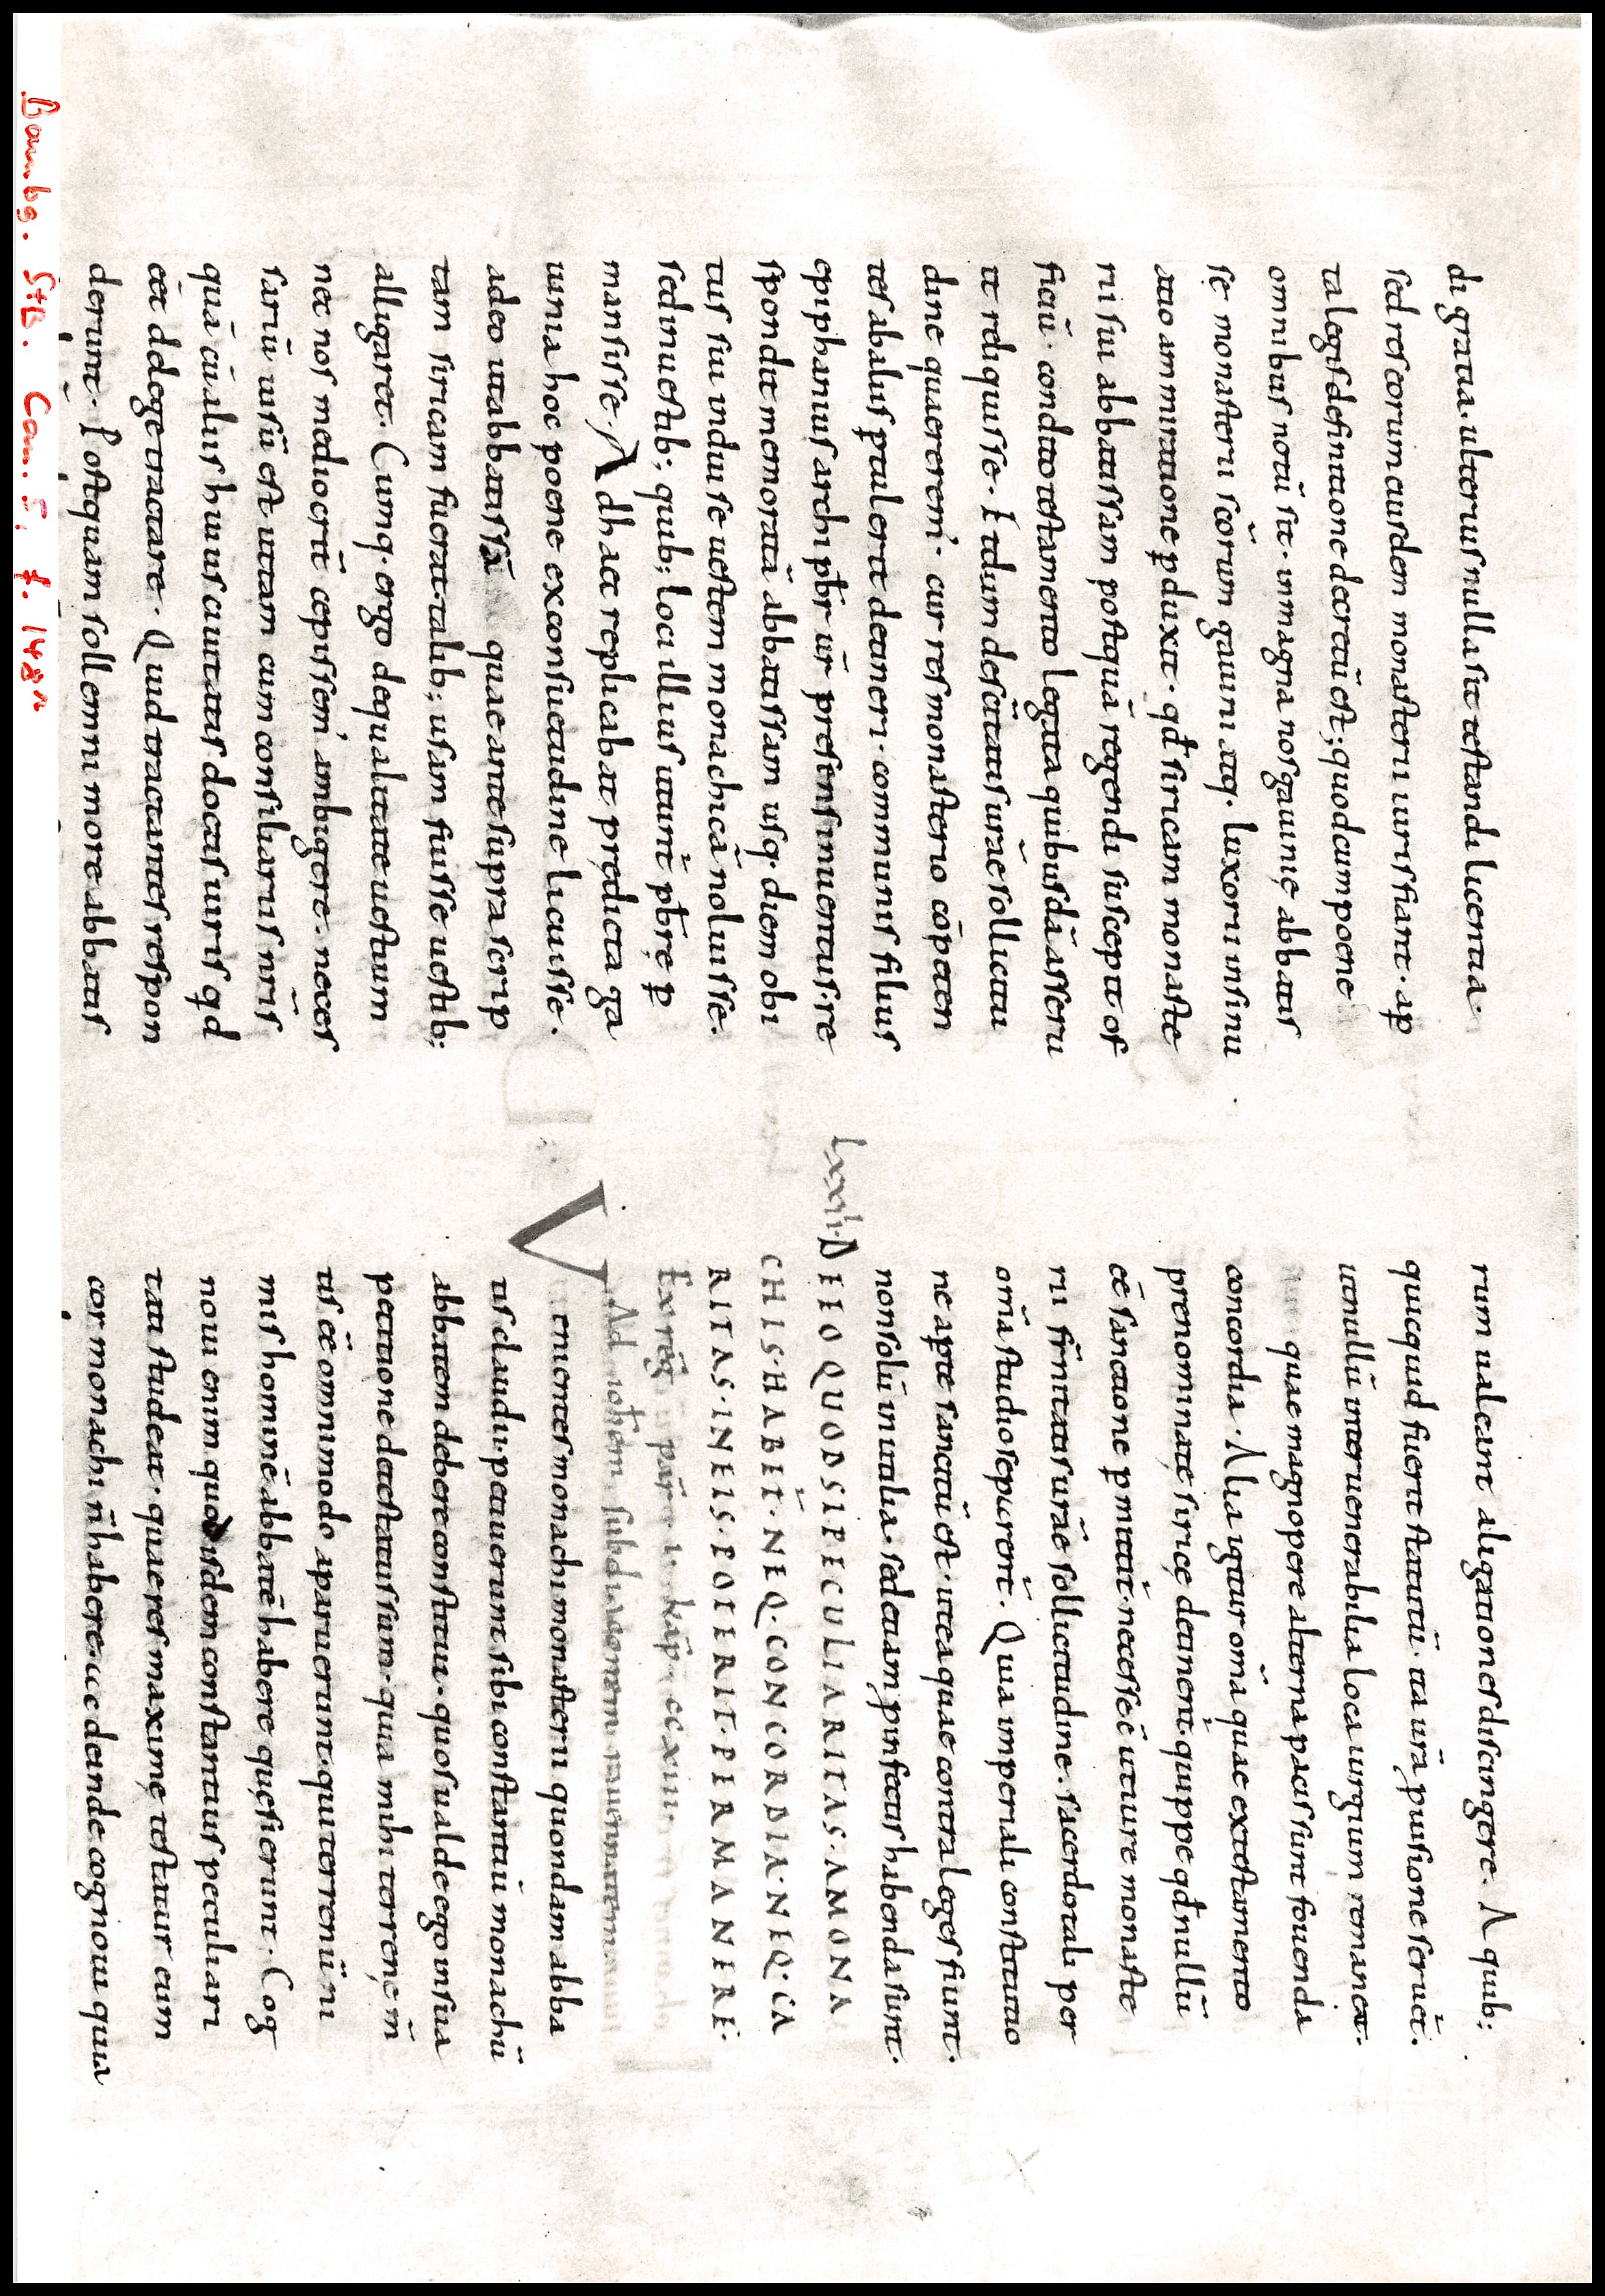 di gratia. ulterius nulla sit testandi licentia.
sed res eorum eiusdem monasterii iuris fiant. ap
ta legis definitione decretū est; quod cum poene
omnibus notū sit. in magna nos gauinię abbatis
se monasterii scōrum gauini atq. luxorii insinu
atio ammiratione ꝑduxit. qđ siricam monaste
rii sui abbatissam postquā regendi suscepit of
ficiū. condito testamento legata quibusdā asseru
it reliquisse. Itdum desc̄itatis uraē sollicitu
dine quaererem'. cur res monasterio cōpeten
tes ab aliis ꝑtulerit detineri. communis filius
epiphanius archi pb̄r ur̄ presens inuentus. re
spondit memoratā abbatissam usq. diem obi
tus sui induisse uestem monachicā noluisse.
sed in uestib; quib; loci illius utunt̃ pb̄rę ꝑ
mansisse. Ad haec replicabat prędicta ga
uinia hoc poene ex consuetudine licuisse.
adeo ut abbatissā quae ante supra scrip
tam siricam fuerat. talib; usam fuisse uestib;
alligaret. Cumq. ergo de qualitate uestium
nec nos mediocrit̃ cepissem' ambigere. neces
sariū uisū est ut tam cum consiliariis nr̄is
quā cū aliis huius ciuitatis doctis uiris qd
eēt de lege tractare. Quid tractantes respon
derunt. Postquam sollemni more abbatis
rum ualeant aligationes distingere. A quib;
quicquid fuerit statutū. ita urā ꝑuisione seruet̃.
ut nullū inter uenerabilia loca iurgium remaneat.
quae magnopere alterna pacis sunt fouenda
concordia. Alia igitur om̄a quae ex testamento
prenominatę siricę detinent̃. quippe qđ nullū
eē sanctione ꝑmittit̃. necessē ē ut iure monaste
rii firmitatis uraē sollicitudine. sacerdotali per
om̄a studio sepurent̃. Quia imperiali constitutio
ne aꝑte sanctū est. ut ea quae contra leges fiunt.
non solū inutilia. sed etiam ꝑ infectis habenda sunt.
lxxii. DE EO QUOD SI PECULIARITAS. A MONA
CHIS. HABET̃. NEQ. CONCORDIA. NEQ. CA
RITAS. IN EIS. POTERIT. PERMANERE.
Ex reg̃ par̃ i. kap̄. ccxiii.
Ad ioh̄em. subdiaconem. rauennatem.
Venientes monachi monasterii quondam abba
tis claudii. petierunt sibi constantiū monachū
abbatem debere constitui. quos ualde ego in sua
petitione detestatus sum. quia mihi terrenę m̄
tis eē omnimodo aparuerunt. qui terrenū ni
mis hominē abbatē habere quęsierunt. Cog
noui enim quod isdem constantius peculiari
tati studeat. quae res maximę testatur eum
cor monachi n̄ habere. ue deinde cognoui quia
Bambg. StB. Can. 5, f. 148r